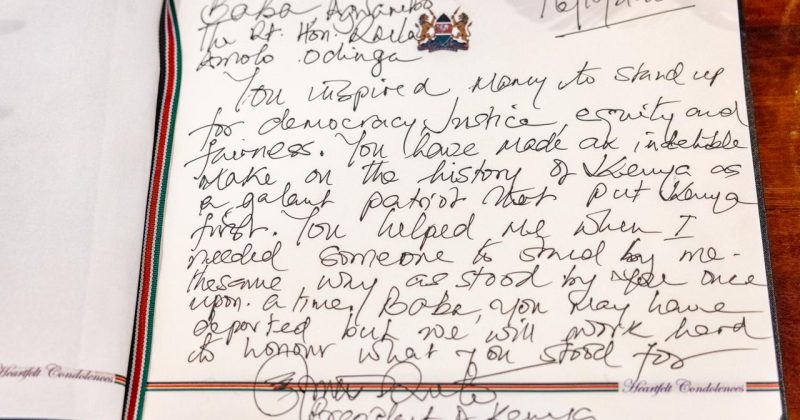 Baba Agwambo
The Rt. Hon. Raila
Amolo Odinga
16/10/
You inspired many to stand up
for democracy, Justice, equity and
fairness. You have made an indelible
make on the history of Kenya as
a galant patriot that put Kenya
first. You helped me when I
needed someone to stand by me -
thesame way as stood by you once
upon a time. Baba, you may have
departed but we will work hard
to honour what you stood for
President of Kenya
Heartfelt Condolences
Heartfelt Condolences